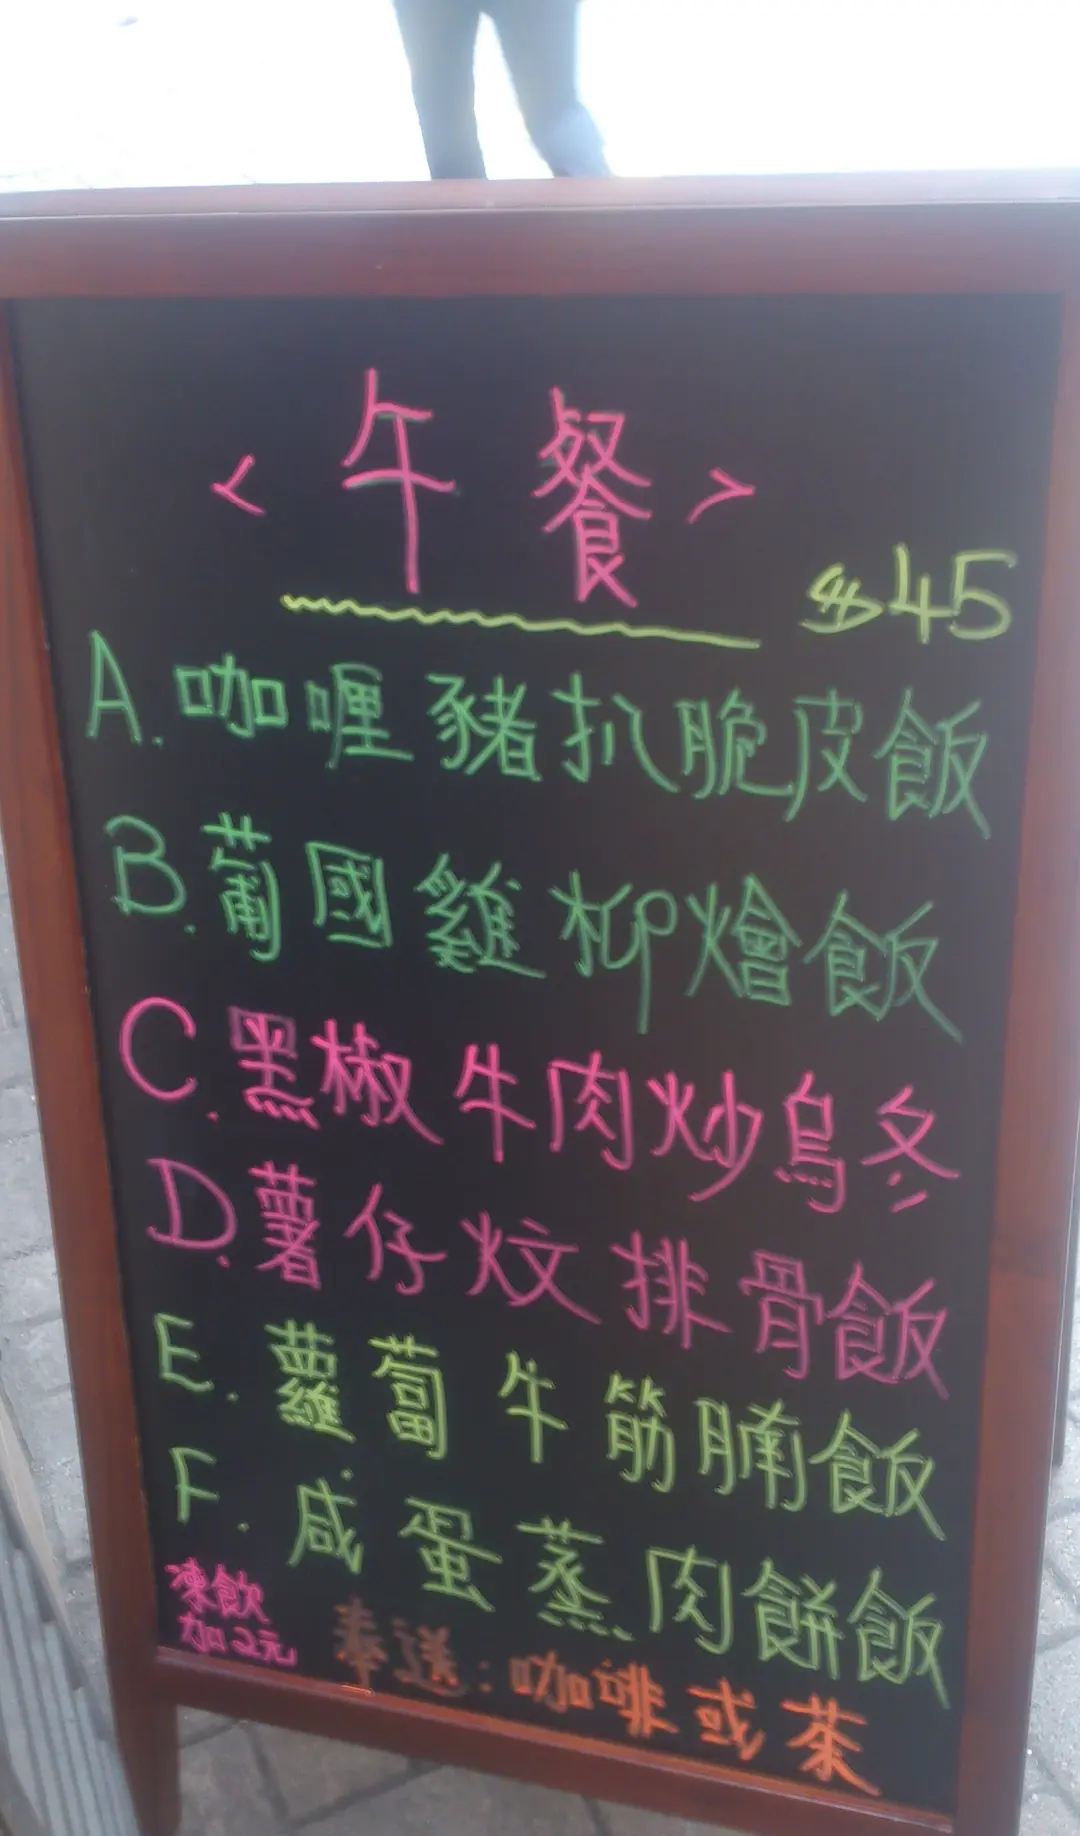 <午餐>
$45
A. 咖喱豬扒脆皮飯
B. 葡國雞柳燴飯
C. 黑椒牛肉炒烏冬
D. 薯仔炆排骨飯
E. 蘿蔔牛筋腩飯
F. 咸蛋蒸肉餅飯
凍飲
加2元
奉送:咖啡或茶